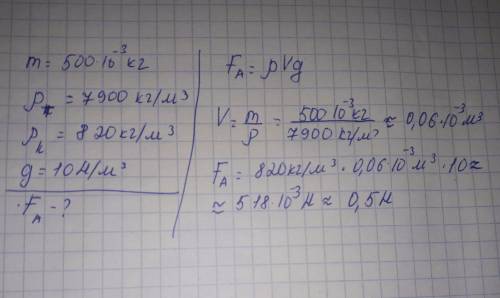 m = 500·10⁻³ кг
ρт = 7900 кг/м³
ρк = 820 кг/м³
g = 10 Н/м³
F_A - ?
F_A = ρVg
V = m/ρ = 500·10⁻³ кг / 7900 кг/м³ ≈ 0,06·10⁻³ м³
F_A = 820 кг/м³ · 0,06·10⁻³ м³ · 10 ≈
≈ 518·10⁻³ Н ≈ 0,5 Н